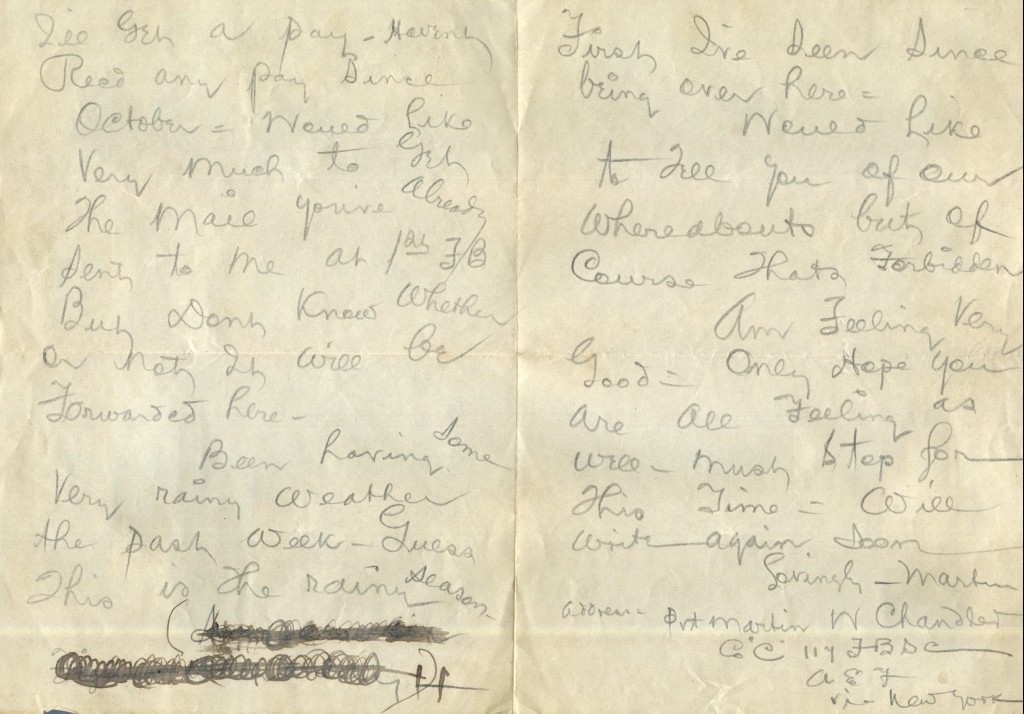 I'll Get a pay - Havent
Recd any pay Since
October = Would Like
Very much to Get
The Mail you've Already
Sent to Me at 1st F/B
But Dont Know Whether
or Not It will be
Forwarded here -
Been having Some
Very rainy weather
the past week - Guess
This is the rainy Season -
First I've Seen Since
being over here =
Would Like
to Tell you of our
Whereabouts but of
Course Thats Forbidden
Am Feeling Very
Good = Only Hope you
are all Feeling as
well - Must Stop for
This Time = Will
write again Soon
Lovingly - Martin
Address = Pvt Martin W Chandler
C.C. 117 F B S C
A E F
via - New York